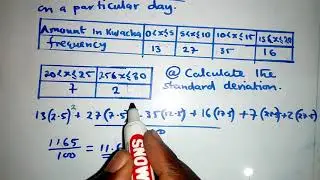 on a particular day.
Amount in Kwacha 0<x≤5 5<x≤10 10<x≤15 15<x≤20
frequency 13 27 35 16
20<x≤25 25<x≤30
7 2
@ Calculate the
standard deviation.
13(2.5)² + 27(7.5) 35(12.5) + 16(17.5) + 7(22.5) + 2(27.5)
1165
100 = 11.6
SNOW